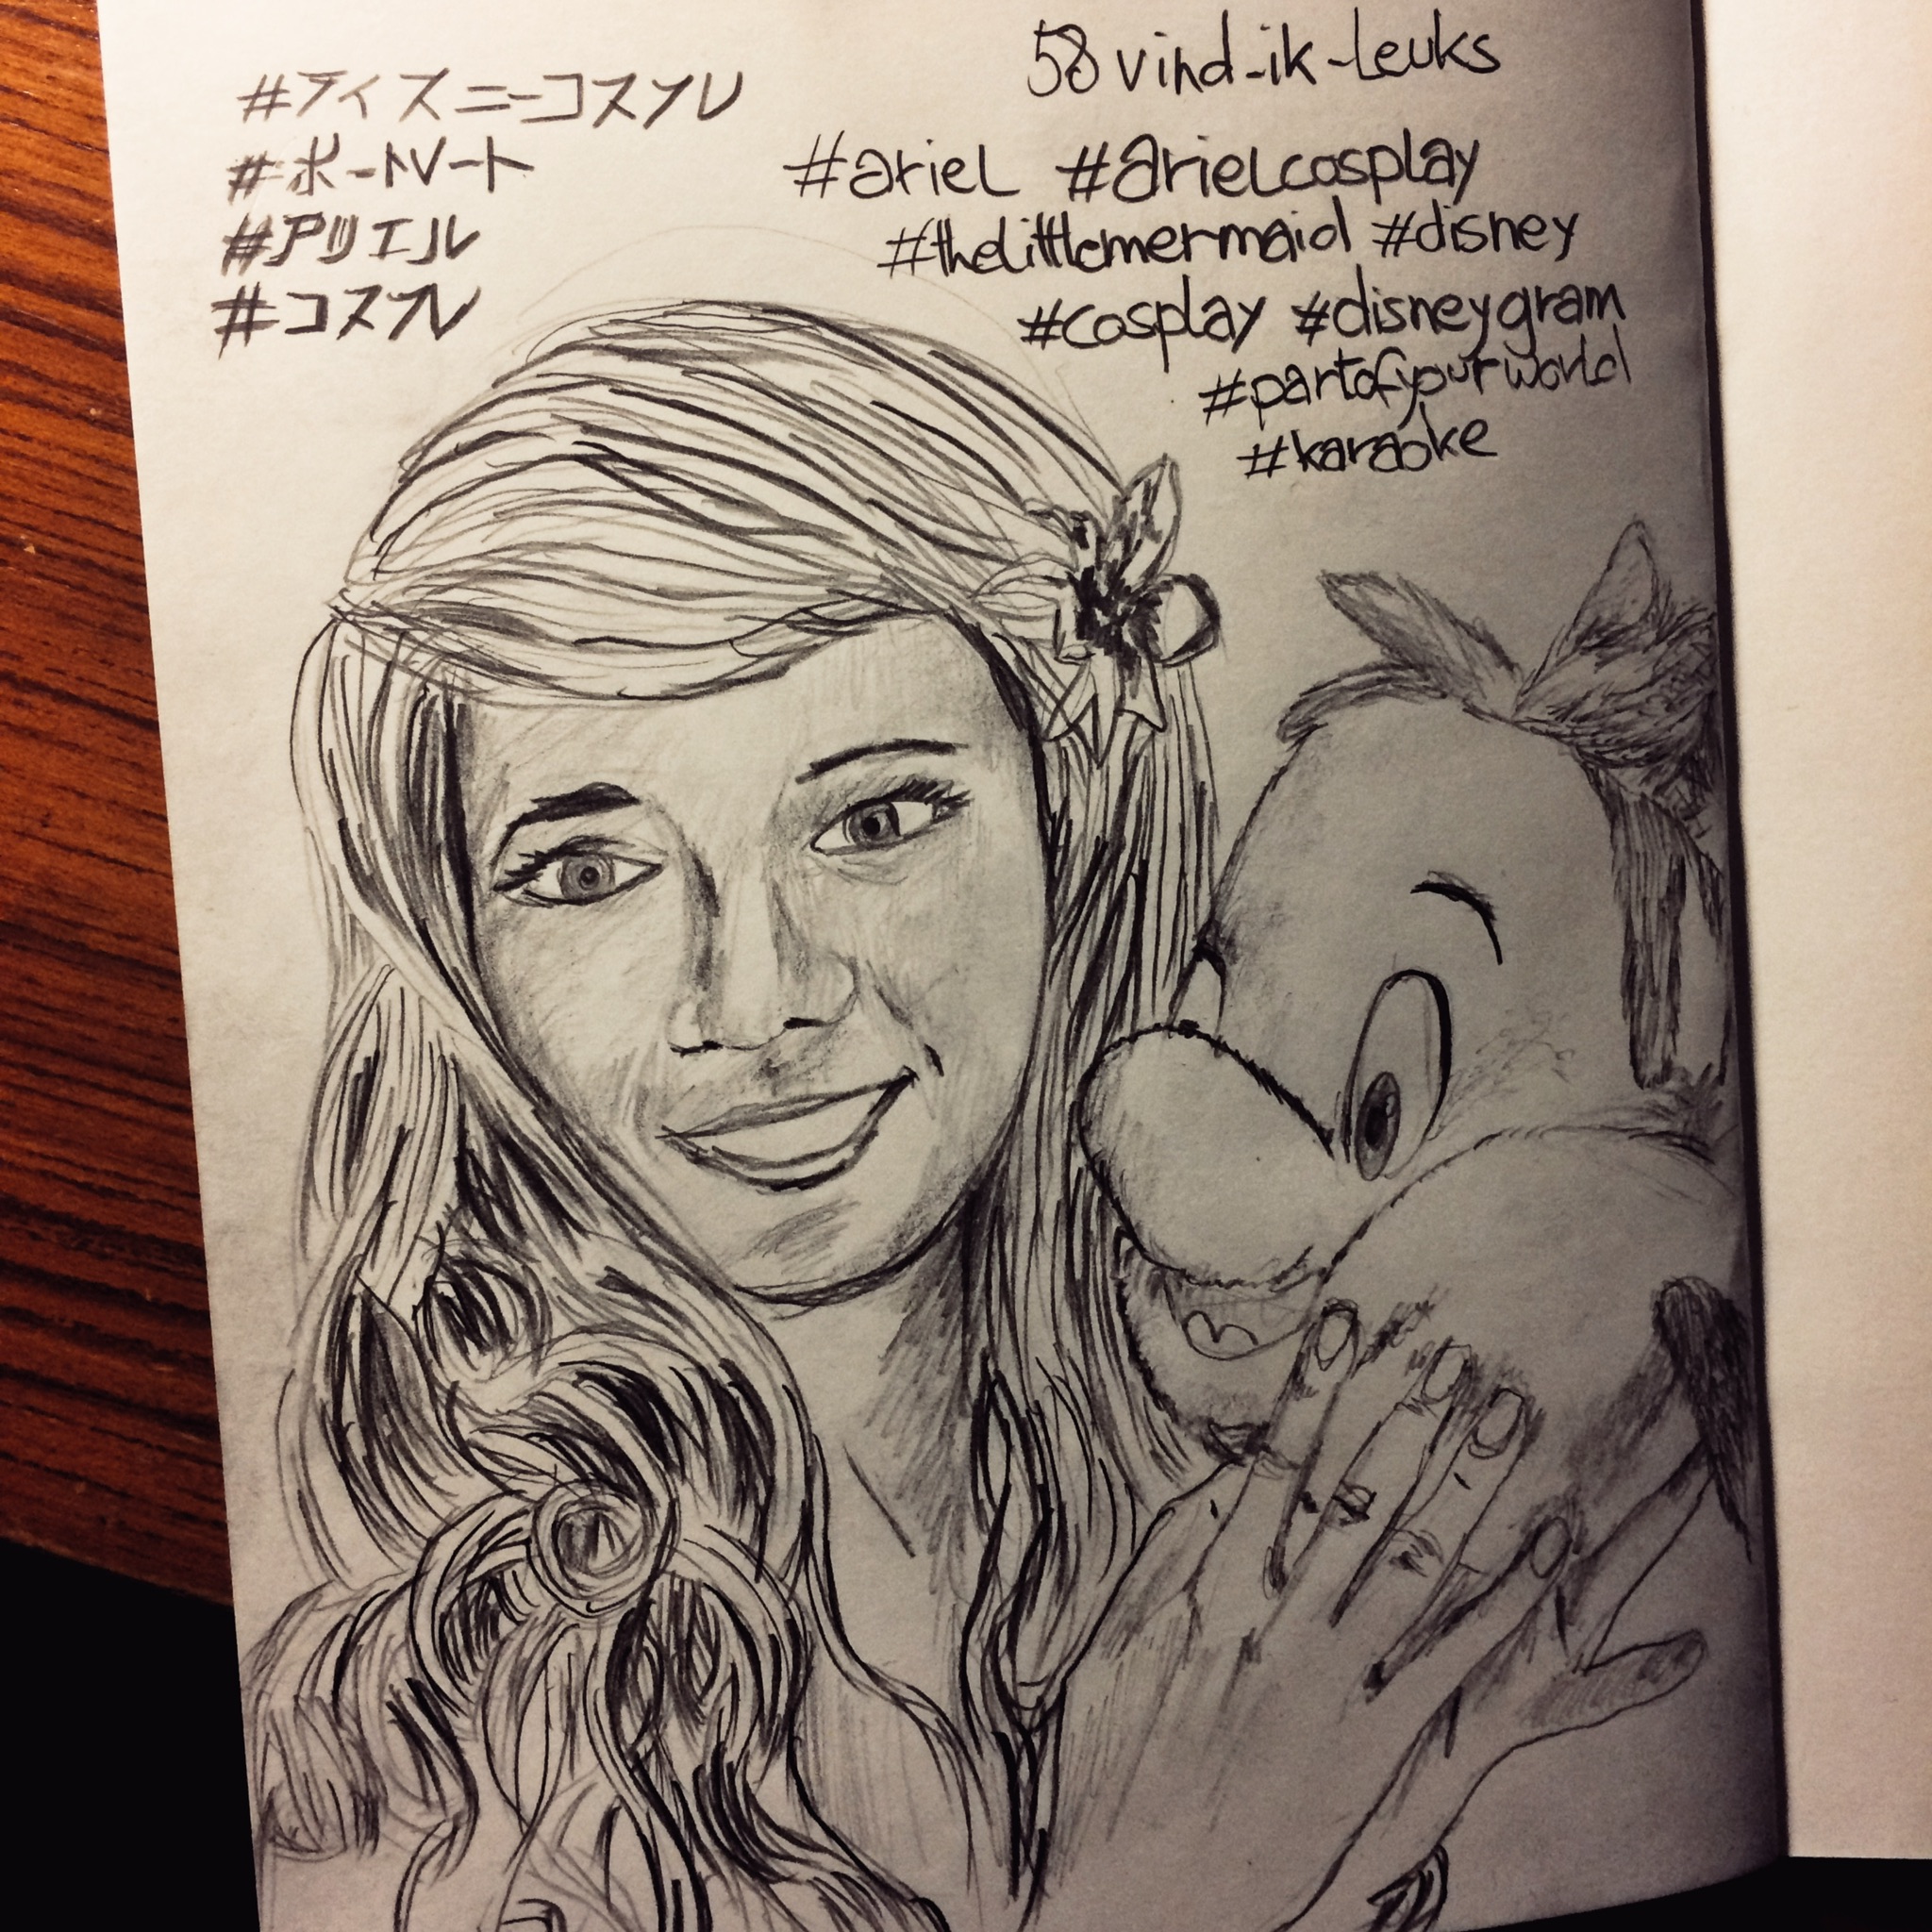 #ディズニーコスプレ
#ポートレート
#アリエル
#コスプレ
58 vind-ik-leuks
#ariel #arielcosplay
#thelittlemermaid #disney
#cosplay #disneygram
#partofyourworld
#karaoke